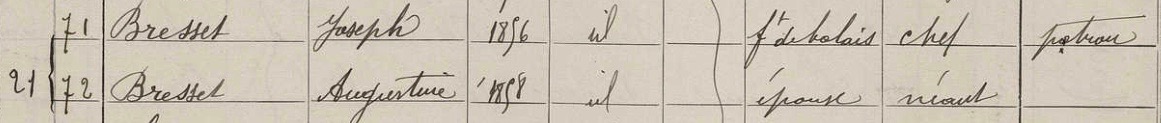 71 Bresset Joseph 1896 id ft de balais chef patron
21 72 Bresset Augustine 1898 id épouse néant